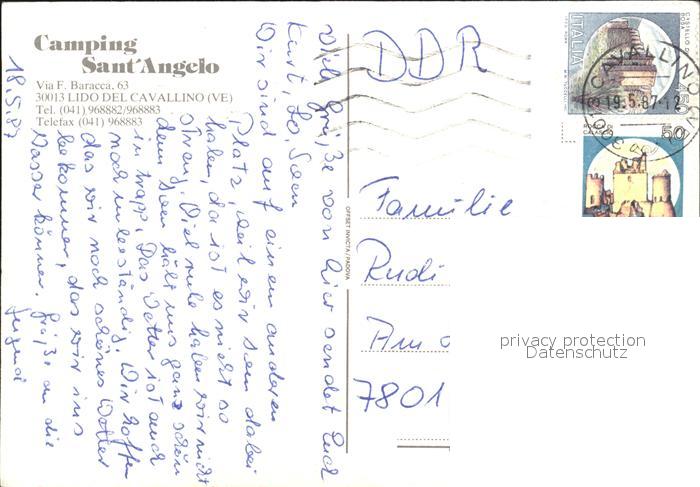 Camping
Sant'Angelo
Via F. Baracca, 63
30013 LIDO DEL CAVALLINO (VE)
Tel. (041) 968882/968883
Telefax (041) 968883
18.5.87
Viele Grüße von hier sendet Euch
Kurt, Lo, Sven
Wir sind auf einem anderen
Platz, weil wir Sven dabei
haben, da ist es nicht so
streng. Viel ruhe haben wir nicht
denn Sven hält uns ganz schön
in trapp. Das Wetter ist auch
noch unbeständig. Wir hoffen
das wir noch schönes Wetter
bekommen, das wir ins
Wasser können. Grüße an die
Jugend
OFFSET INVICTA / PADOVA
DDR
Familie
Rudi
Am
7801
ITALIA
450
50
CAVALLINO
19.5.87-12
300
privacy protection
Datenschutz